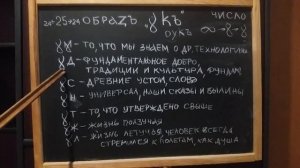 24"-25"-24 ОБРАZЪ ꙋКЪ" ЧИСЛО
РУКЪ ∞-8-8
ꙋМ - ТО, ЧТО МЫ ЗНАЕМ О ДР. ТЕХНОЛОГИИ
ꙋД - ФУНДАМЕНТАЛЬНОЕ ДОБРО,
ТРАДИЦИИ И КУЛЬТУРА, ФУНДАМ.
ꙋС - ДРЕВНИЕ УСТОИ, СЛОВО
ꙋН - УНИВЕРСАЛ, НАШИ СКАЗЫ И БЫЛИНЫ
ꙋТ - ТО, ЧТО УТВЕРЖДЕНО СВЫШЕ
ꙋЖ - ЖИЗНЬ ПОЛЗУЧАЯ
ꙋЛ - ЖИЗНЬ ЛЕТУЧАЯ, ЧЕЛОВЕК ВСЕГДА
СТРЕМИЛСЯ К ПОЛЕТАМ, КАК ДУША